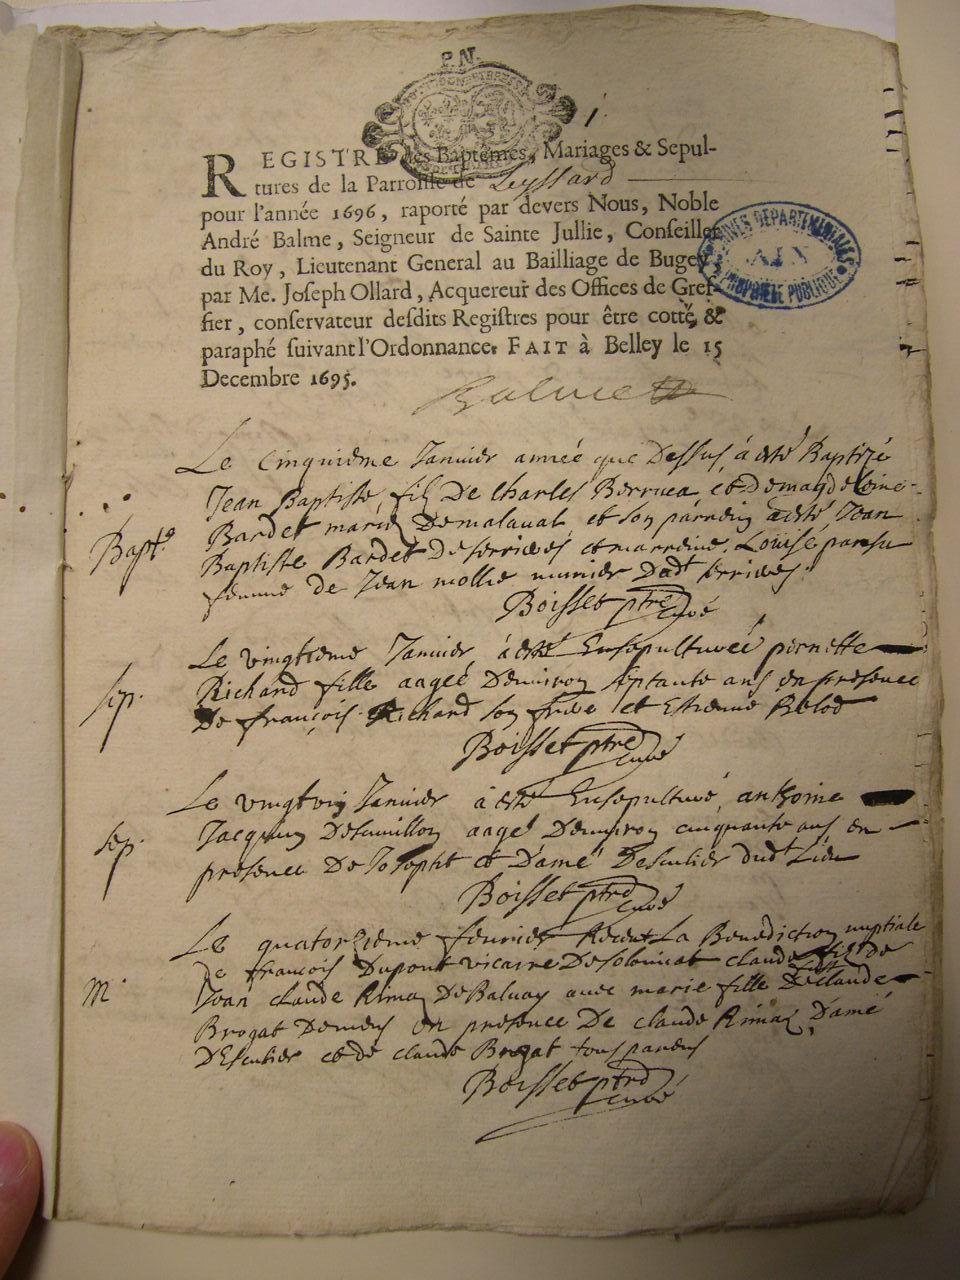 P.N.
1
REGISTRE des Baptêmes, Mariages & Sepul-
tures de la Parroisse de Leyssard
pour l'année 1696, raporté par devers Nous, Noble
André Balme, Seigneur de Sainte Jullie, Conseiller
du Roy, Lieutenant General au Bailliage de Bugey,
par Me. Joseph Ollard, Acquereur des Offices de Gref-
fier, conservateur desdits Registres pour être cotté, &
paraphé suivant l'Ordonnance. FAIT à Belley le 15
Decembre 1695.
ARCHIVES DÉPARTEMENTALES
AIN
PROPRIÉTÉ PUBLIQUE
Balme
Le Cinquieme Janvier année que Dessus á esté Baptizé
Jean Baptiste fils De Charles Berruea et de magdeleine
Bapt.
Bardet mariés Demalaval et son parrein à esté Jean
Baptiste Bardet De serrieres et marreine Louise
femme de Jean mollie munier Dudt serrieres
Boisset ptre
curé
Le vingtieme Janvier à esté Ensepulturée pernette
Richard fille aagée Denviron septante ans en presence
sep.
De françois Richard son frere et Estienne Belod
Boisset ptre
curé
Le Janvier à esté Ensepulturé anthoine
Jacquin aagé Denviron cinquante ans en
sep.
presence De Joseph et D'amé Desculier dudt Lieu
Boisset ptre
curé
Le quatorzieme febvrier La Benediction nuptiale
De françois Dupont vicaire De claude fils de
m.
Jean claude Rimaz De Balvay avec marie fille De claude
Brogat en presence De claude Rimaz D'amé
D'Esculier et de claude Brogat tous parens
Boisset ptre
curé